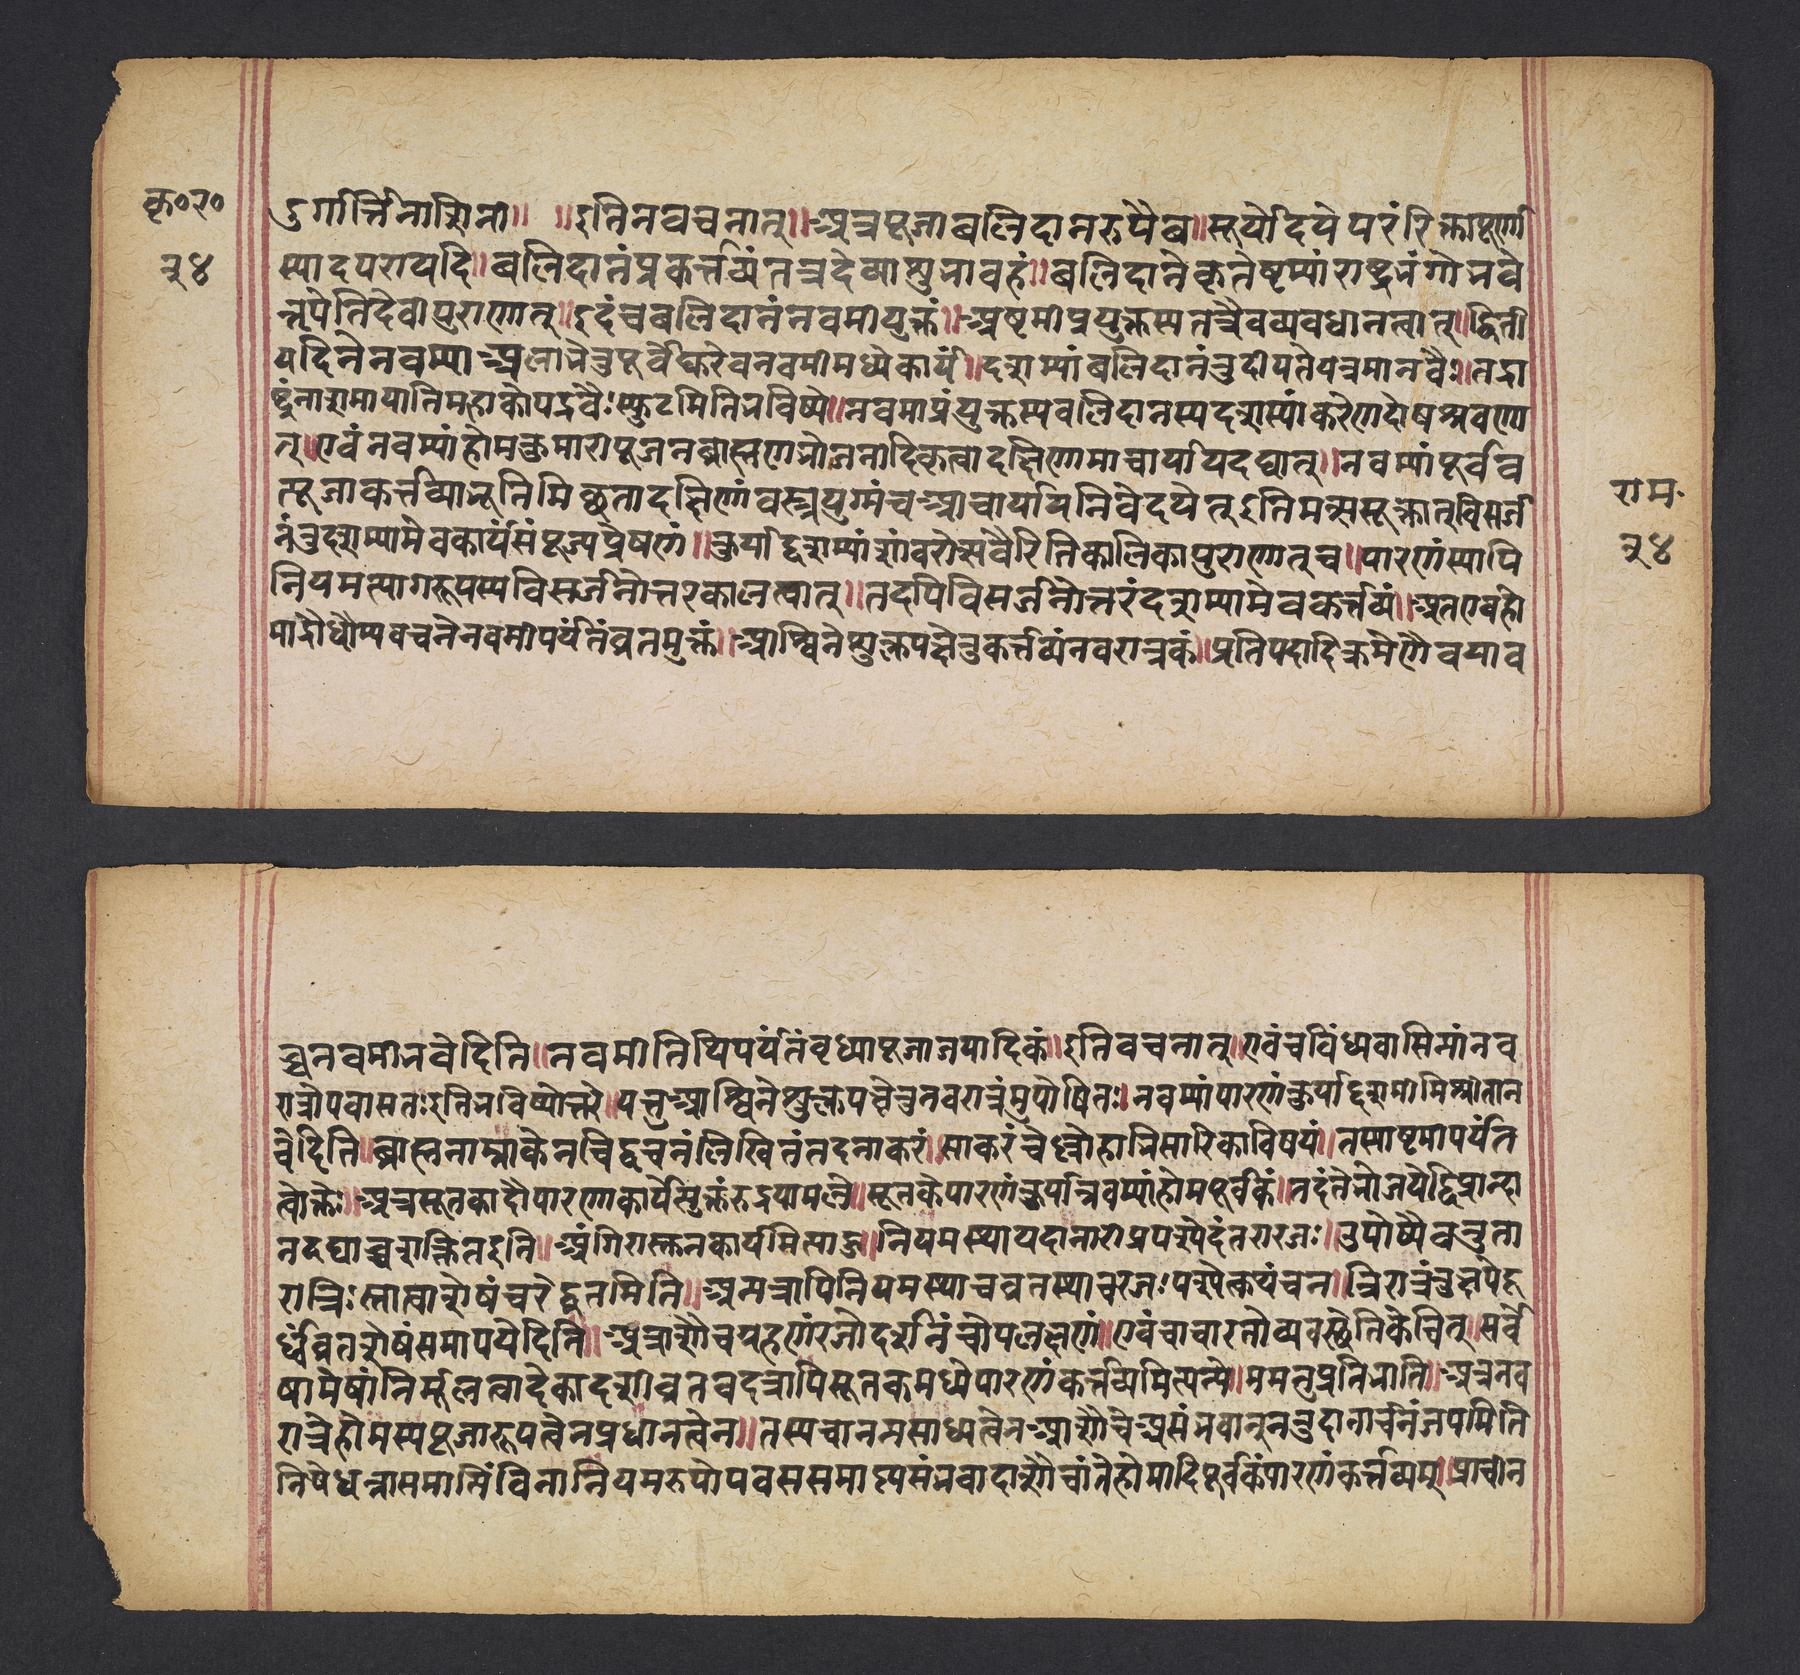 कृ०र०
२४
दुर्गार्त्तिनाशिनी॥ ॥इतिनवचनात्॥अत्रपूजाबलिदानरुपैव॥सूर्योदये परं रिक्तापूर्णा
स्यादपरायदि॥बलिदानंप्रकर्त्तव्यंतत्रदेव्याशुभावहं॥बलिदानेकृतेष्टम्यांराष्ट्रभंगोभवे
न्नृपेतिदेवीपुराणात्॥इदंचबलिदानंनवमीयुक्तं॥अष्टमीप्रयुक्तस्यतत्रैवव्यवधानत्वात्॥द्विती
यदिनेनवम्याअलाभेतुपूर्वेद्युरेवनवमीमध्येकार्यं॥दशम्यांबलिदानंतुदीयतेयत्रमानवैः॥तद्रा
ष्ट्रंनाशमायातिमहाकोपद्रवैःस्फुटमितिभविष्ये॥नवमीप्रयुक्तस्यबलिदानस्यदशम्यांकरणेदोषश्रवणा
त्॥एवंनवम्यांहोमकुमारीपूजनब्राह्मणभोजनादिकृत्वादक्षिणामाचार्यायदद्यात्॥नवम्यांपूर्वव
त्पूजाकर्त्तव्याभूतिमिच्छतादक्षिणांवस्त्रयुग्मंचआचार्यायनिवेदयेत्इतिमत्स्यसूक्तात्विसर्ज
नंतुदशम्यामेवकार्यंसंपूज्यप्रेषणं॥कुर्याद्दशम्यांशांवरोत्सवैरितिकालिकापुराणात्च॥पारणंस्यापि
नियमत्यागरूपस्यविसर्जनोत्तरकालत्वात्॥तदपिविसर्जनोत्तरंदशम्यामेवकर्त्तव्यं॥अतएवहे
माद्रौधौम्यवचनेनवमीपर्यंतंव्रतमुक्तं॥आश्विनेशुक्लपक्षेतुकर्त्तव्यंनवरात्रकं॥प्रतिपदादिक्रमेणैवयाव
राम॰
२४
च्चनवमीभवेदिति॥नवमीतिथिपर्यंतंवृध्यापूजाजपादिकं॥इतिवचनात्॥एवंचविंध्यवासिन्यांनव
रात्रोपवासतःइतिभविष्योत्तरे॥यत्तुआश्विनेशुक्लपक्षेतुनवरात्रंमुपोषितः॥नवम्यांपारणंकुर्याद्दशमीमिश्रितान
चेदिति॥ब्राह्मनाम्नाकेनचिद्वचनंलिखितंतदनाकरं॥साकरंचेन्नोहाभिसारिकाविषयं॥तस्याष्टमीपर्यंत
त्वोक्तेः॥अत्रसूतकादौपारणाकार्येत्युक्तंरुद्रयामले॥सूतकेपारणंकुर्यान्नवम्यांहोमपूर्वकं॥तदंतेभोजयेद्विप्रान्दा
नदद्याच्चशक्तितइति॥अंगिरास्तनकार्यमित्याह॥नियमस्थायदानारीप्रपश्येदंतरारजः॥उपोष्यैवनुता
रात्रिःस्नात्वाशेषंचरेद्व्रतमिति॥अन्यत्रापिनियमस्थाचव्रतस्थाचरजःपश्येत्कथंचन॥त्रिरात्रंतुक्षपेदू
र्ध्वंव्रतशेषंसमापयेदिति॥अत्राशौचग्रहणंरजोदर्शनंचोपलक्षणं॥एवंचाचारतोव्यवस्थेतिकेचित्॥सर्वे
षामेषांनिर्मूलत्वादेकादशीव्रतवदत्रापिसूतकमध्येपारणंकर्त्तव्यमित्यन्ये॥ममतुप्रतिभाति॥अत्रनव
रात्रेहोमस्यपूजारूपत्वेनप्रधानत्वेन॥तस्यचानन्यसाध्यत्वेनआशौचेअसंभवात्ननुदानार्चनंजपमिति
निषेधन्नासमाप्तिंविनानियमरुपोपवससमाप्त्यसंभवादाशौचांतेहोमादिपूर्वकंपारणंकर्त्तव्यम्॥प्राचीन